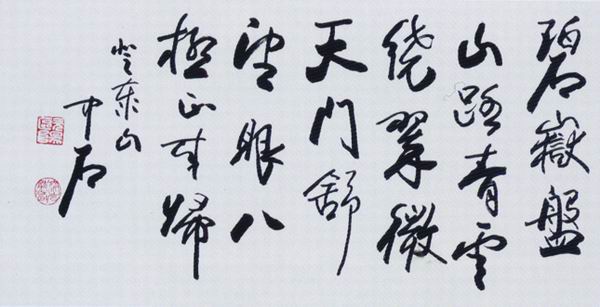 碧嶽盤
山路青雲
繞翠微
天門舒
望眼八
極正来歸
登泰山
中石